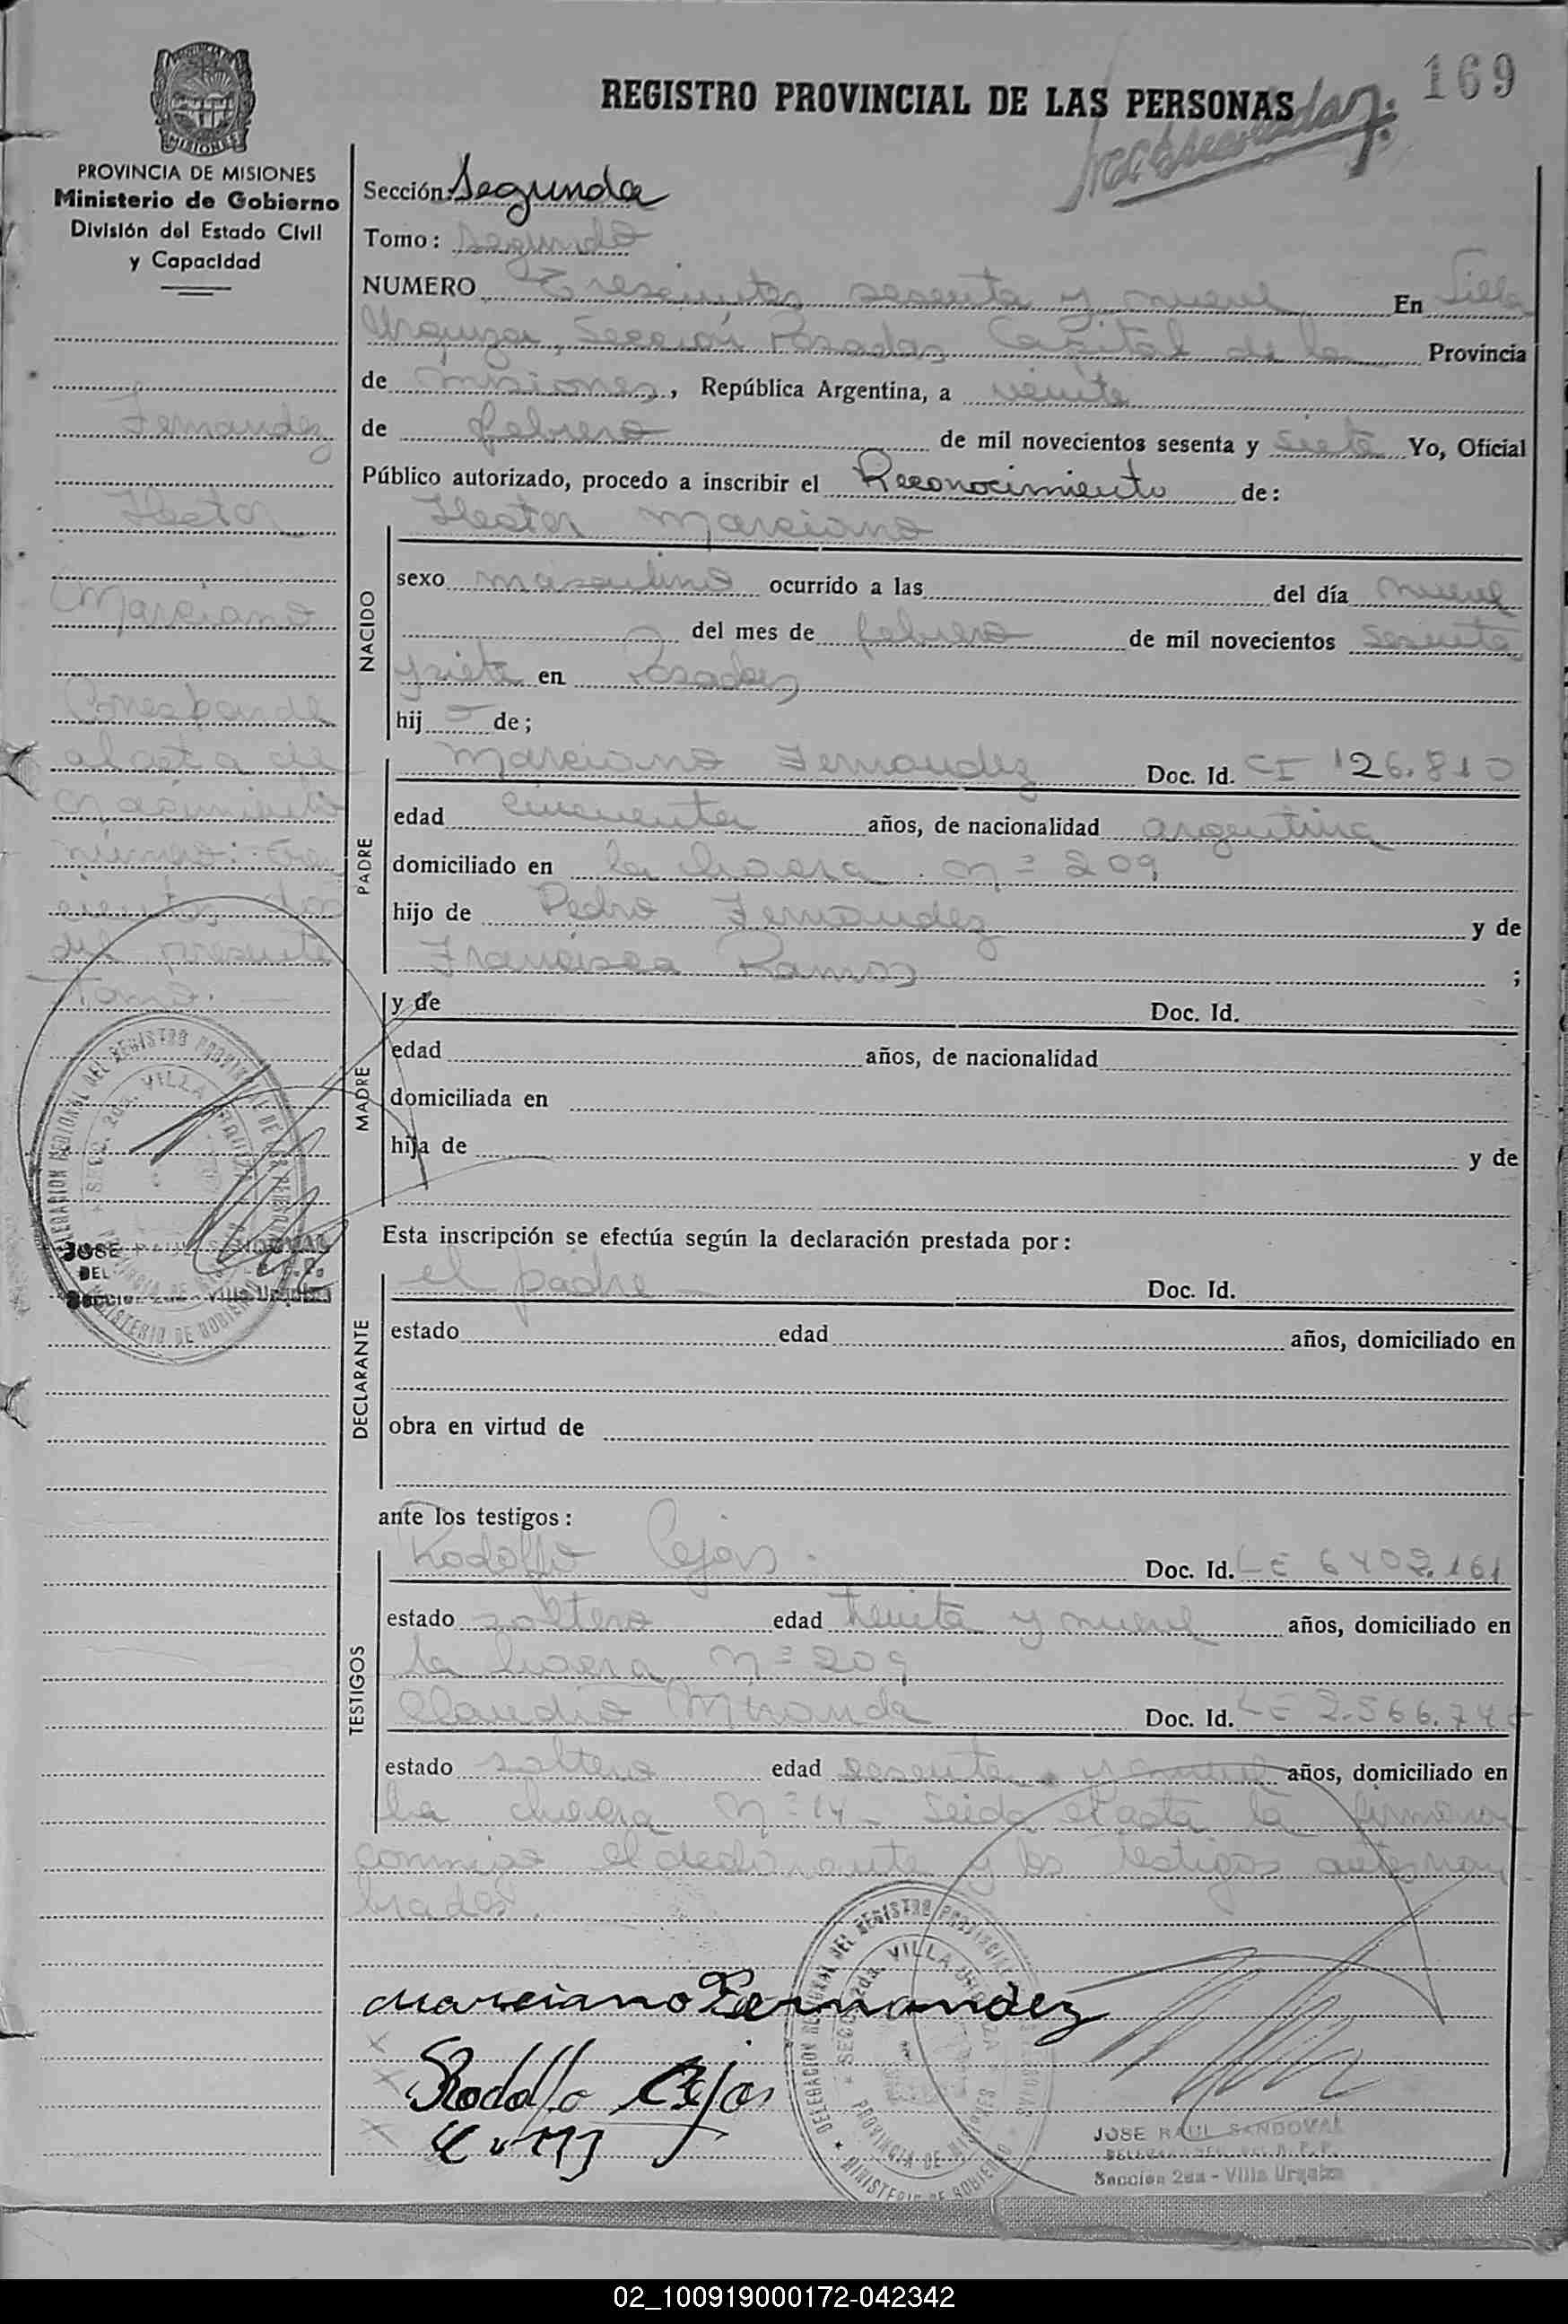 169
REGISTRO PROVINCIAL DE LAS PERSONAS
PROVINCIA DE MISIONES
Ministerio de Gobierno
División del Estado Civil
y Capacidad
Fernandez
Hector
Marciano
Corresponde
al acta de
nacimiento
número: tres
cientos dos
del presente
Tomo.
DELEGACION REGIONAL DEL REGISTRO PROVINCIAL DE LAS PERSONAS
SECC. 2da. VILLA URQUIZA
PROVINCIA DE MISIONES
MINISTERIO DE GOBIERNO
JOSE RAUL SANDOVAL
Sección 2da - Villa Urquiza
Sección: Segunda
Tomo: Segundo
NUMERO Trescientos sesenta y nueve En Villa
Urquiza, Sección Posadas Capital de la Provincia
de Misiones, República Argentina, a veinte
de febrero de mil novecientos sesenta y siete Yo, Oficial
Público autorizado, procedo a inscribir el Reconocimiento de:
NACIDO
Hector Marciano
sexo masculino ocurrido a las del día nueve
del mes de febrero de mil novecientos sesenta
y siete en Posadas
hijo de;
PADRE
Marciano Fernandez Doc. Id. CI 126.810
edad cincuenta años, de nacionalidad argentina
domiciliado en la chacra nº 209
hijo de Pedro Fernandez y de
Francisca Ramos ;
MADRE
y de Doc. Id.
edad años, de nacionalidad
domiciliada en
hija de y de
Esta inscripción se efectúa según la declaración prestada por:
DECLARANTE
el padre Doc. Id.
estado edad años, domiciliado en
obra en virtud de
ante los testigos:
TESTIGOS
Rodolfo Cejas. Doc. Id. LE 6402.161
estado soltero edad treinta y nueve años, domiciliado en
la chacra nº 209
Claudio Miranda Doc. Id. LE 2.566.74
estado soltero edad sesenta y nueve años, domiciliado en
la chacra nº 14 - Leida el acta la firman
conmigo el declarante y los testigos antes nom
brados.
Marciano Fernandez
Rodolfo Cejas
DELEGACION REGIONAL DEL REGISTRO PROVINCIAL
SECC. 2da. VILLA URQUIZA
PROVINCIA DE MISIONES
MINISTERIO DE GOBIERNO
JOSE RAUL SANDOVAL
Sección 2da - Villa Urquiza
02_100919000172-042342